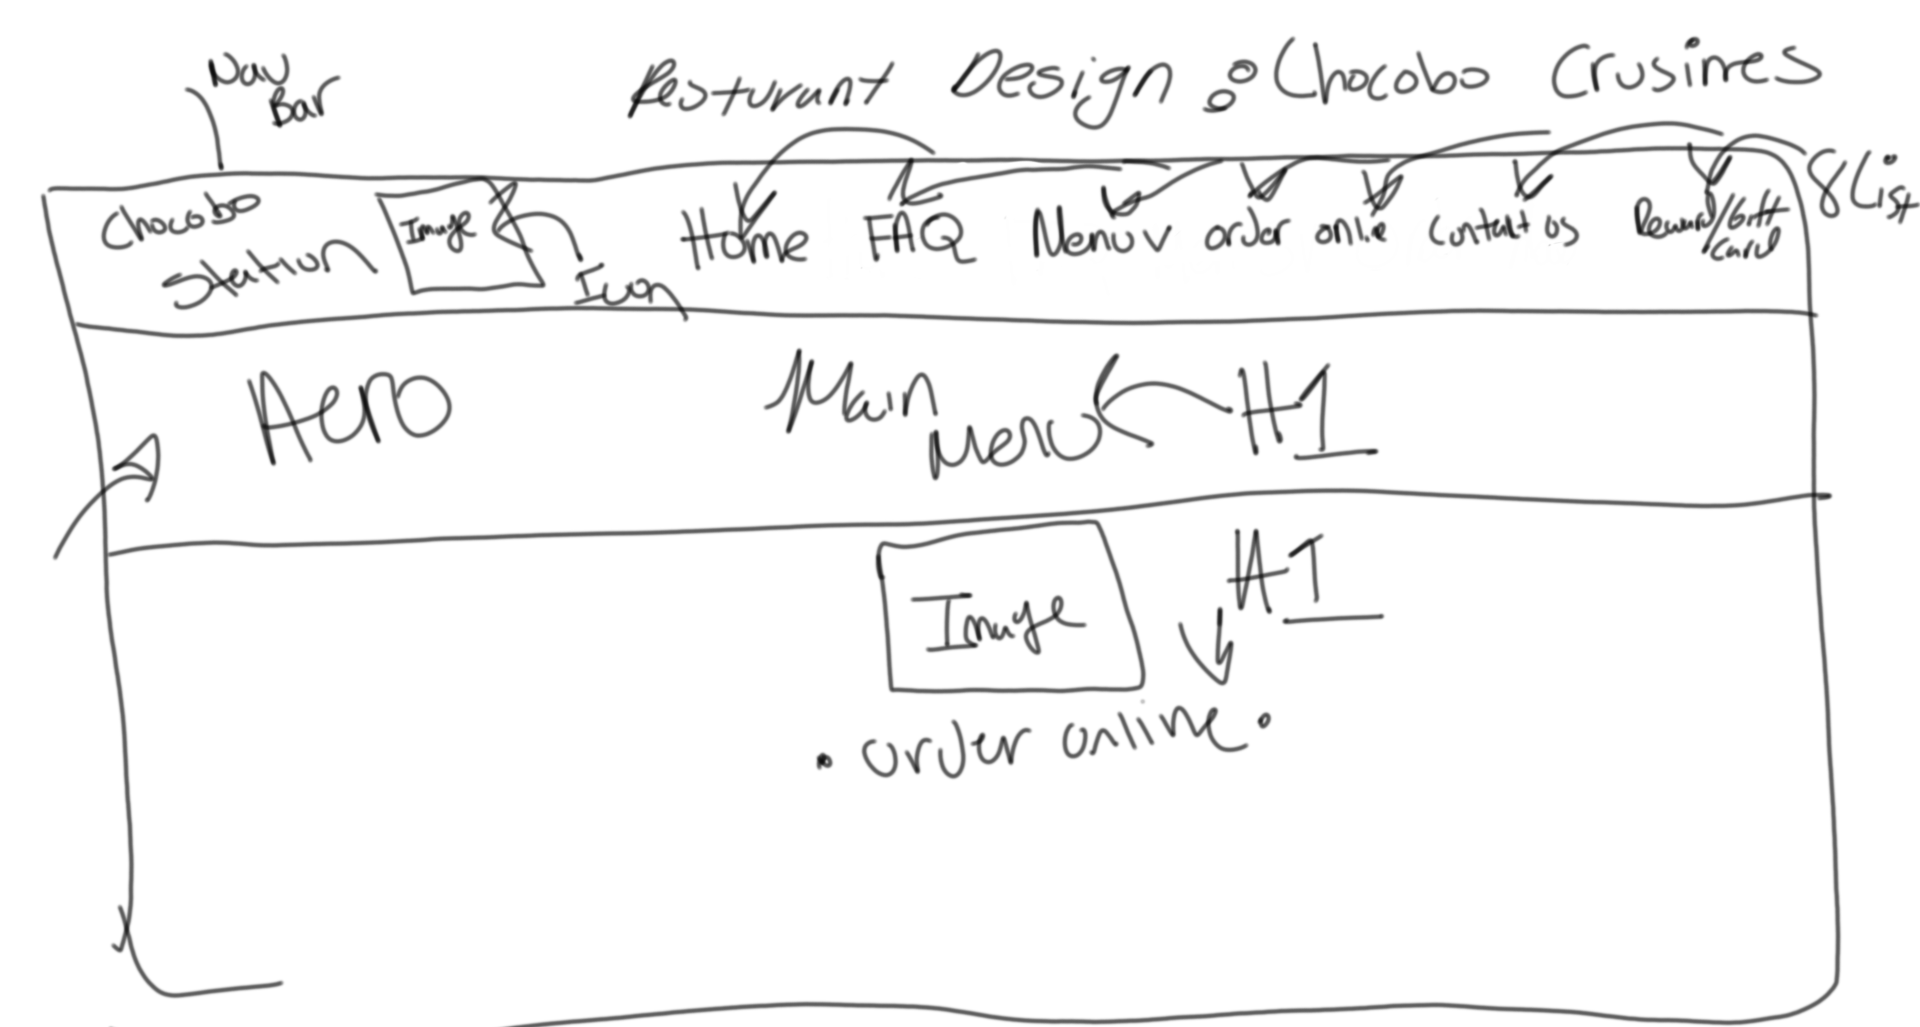 Nav
Bar
Resturant Design : Chocobo Crusines
8 List
Chocobo
Station
Image
Icon
Home FAQ Menu order onlie Contact us Reward/Gift
Card
Hero
Main
Menu
H1
Image
H1
• order online.